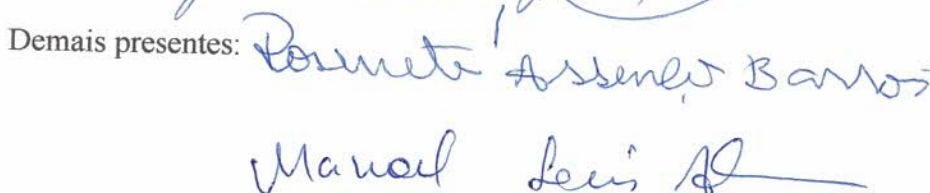 Demais presentes: Rosinete Assenço Barros
Manoel Luis